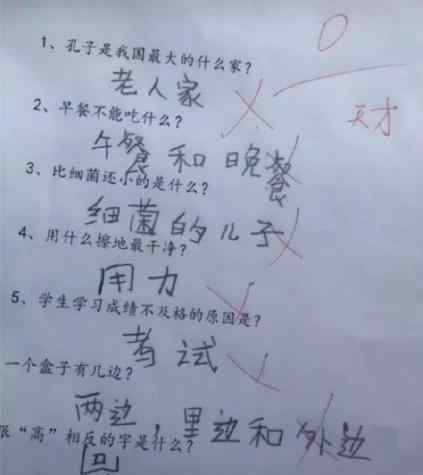 0
1、孔子是我国最大的什么家?
老人家
天才
2、早餐不能吃什么?
午餐和晚餐
3、比细菌还小的是什么?
细菌的儿子
4、用什么擦地最干净?
用力
5、学生学习成绩不及格的原因是?
考试
一个盒子有几边?
两边,里边和外边
"高"相反的字是什么?